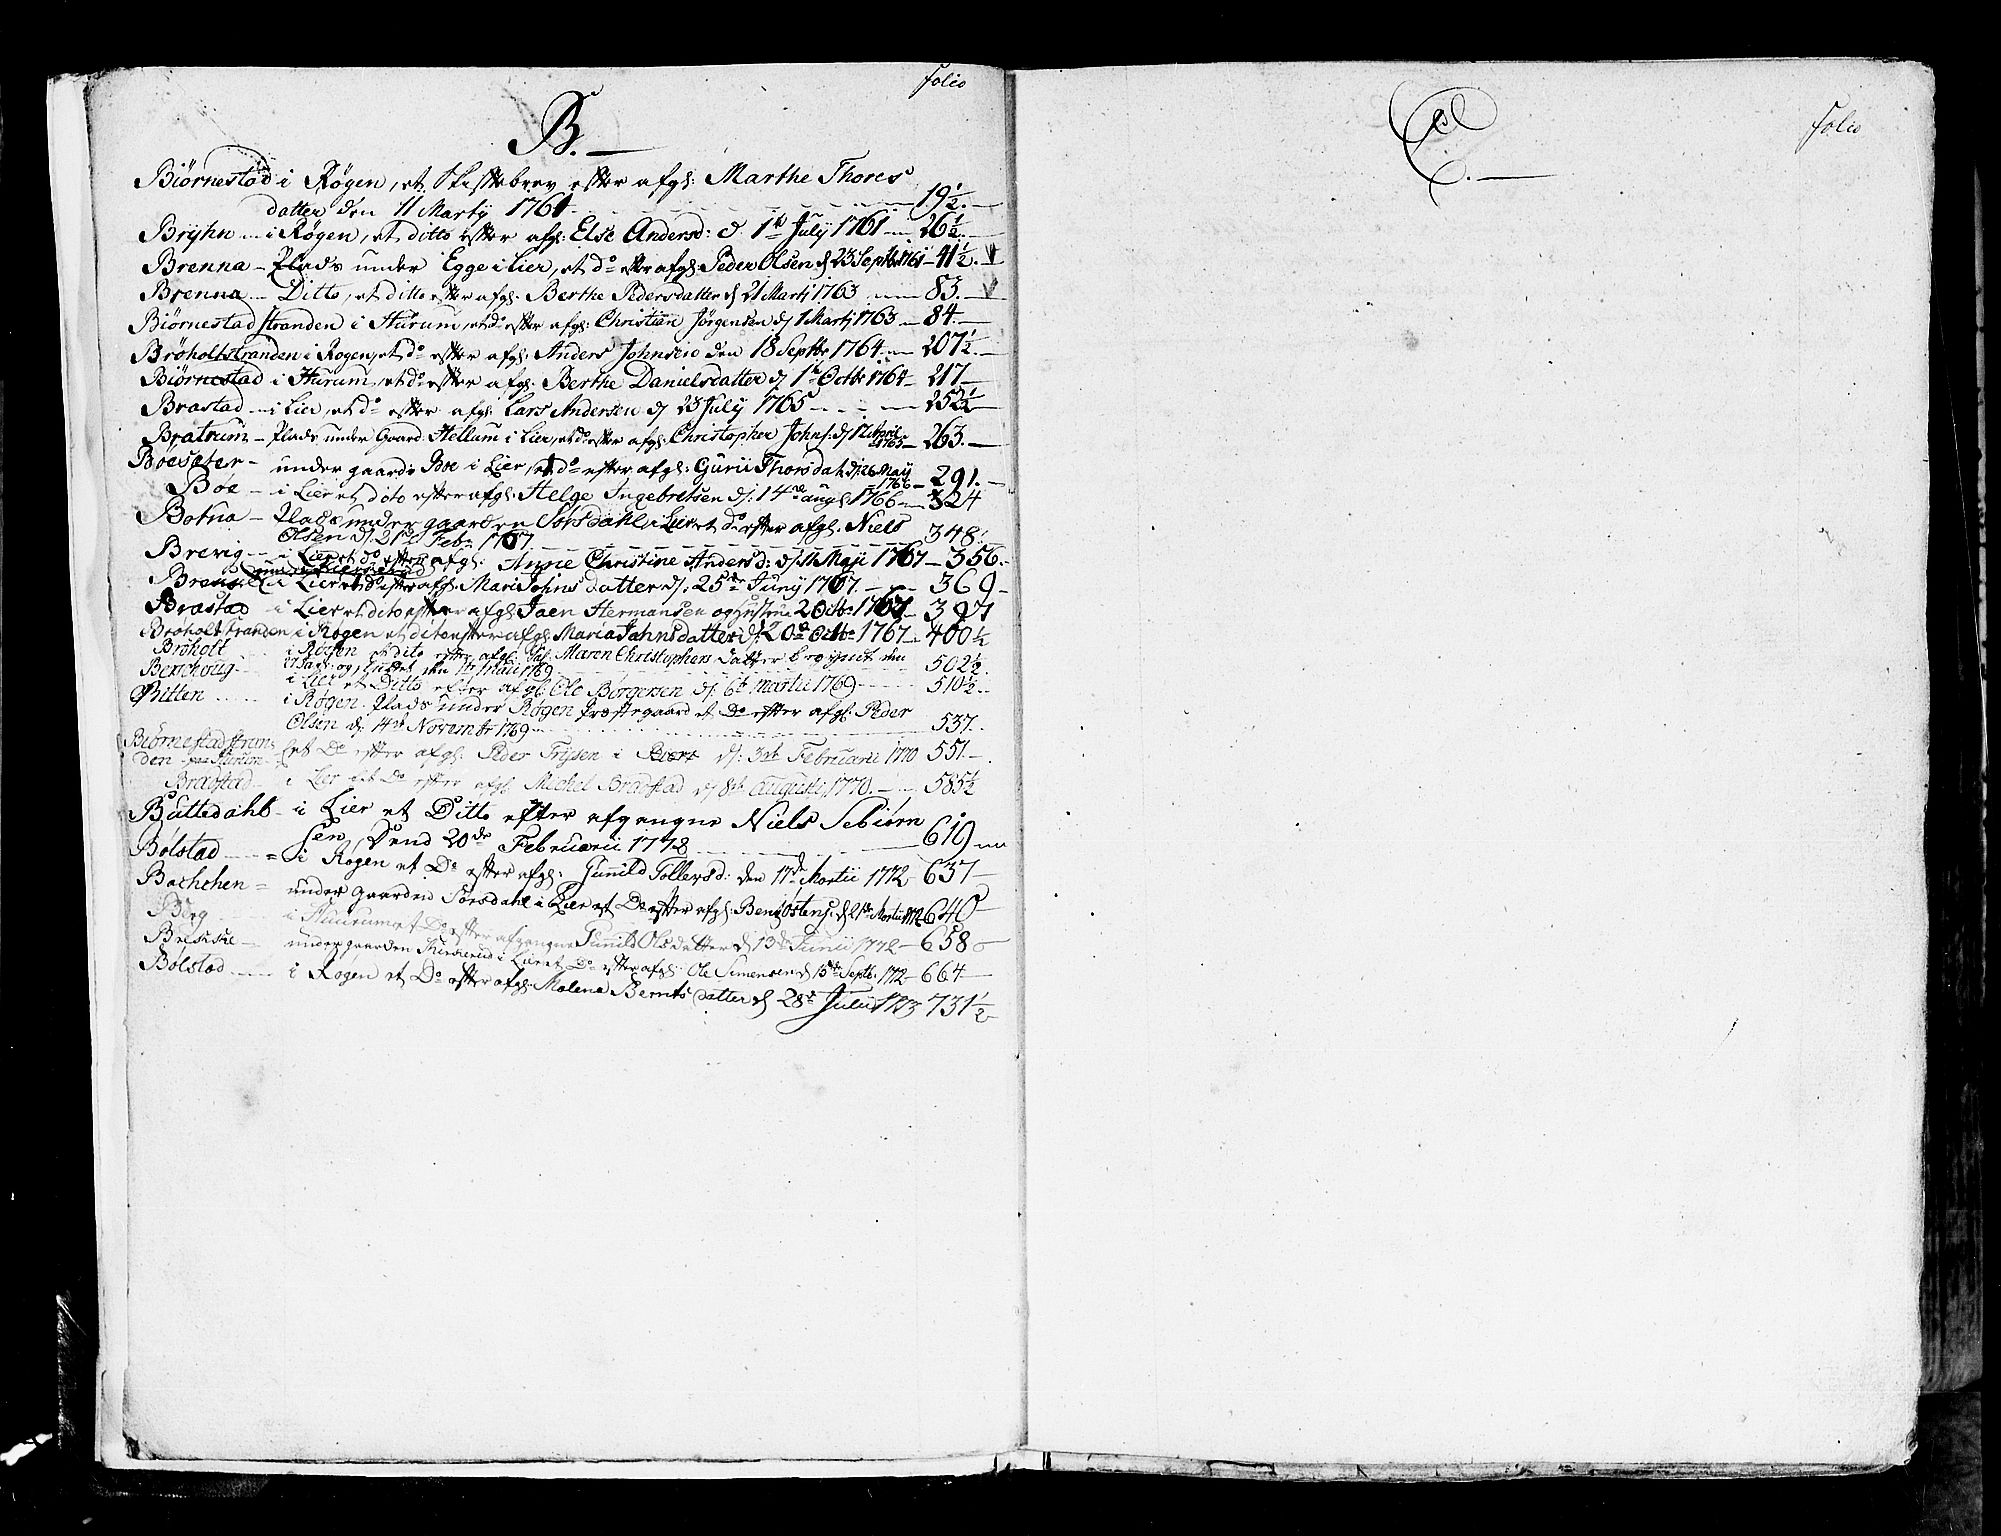 folio
B.
Biørnestad i Røgen, et Skiftebrev efter afgl: Marthe Thores
datter den 11 Martÿ 1761. 19½.
Brÿhn i Røgen, et ditto efter afgl: Else Andersd: d. 1te Julÿ 1761 26½.
Brenna Plads under Egge i Lier, et do efter afgl: Peder Olsen d 23 Septbr 1761 41½.
Brenna Ditto, et ditto efter afgl: Berthe Pedersdatter d 21 Martj 1763 83.
Biørnestadstranden i Hurum, et do efter afgl: Christian Jørgensen d 1 Martj 1763 84.
Brøholtstranden i Røgen, et do efter afgl: Anders Johnsen den 18 Septbr 1764 207½.
Biørnestad i Hurum, et do efter afgl: Berthe Danielsdatter d 1te Octbr 1764 217
Brastad i Lier, et do efter afgl: Lars Andersen d 23 Julÿ 1765 252½
Bratrum Plads under Gaard: Hellum i Lier, et do efter afgl: Christopher Johns: d 12 April 1765 263.
Boesæter under gaard: Boe i Lier, et do efter afgl: Gurii Thorsdat: d: 26 Maÿ 1766 291.
Boe i Lier et dito efter afgl: Helge Ingebretsen d: 14de augl 1766 324
Botna Plads under gaarden Sørsdahl i Lier et do efter afgl: Niels
Olsen d. 21de Febr: 1767 348.
Brevig i Lier et do efter afgl: Anne Christine Andersd: d: 11 Maji 1767 356.
Breschi i Lier et do efter afgl: Mari Johns datter d: 25de Junÿ 1767. 369
Brastad i Lier et dito efter afgl: Jaen Hermansen og Hustrue 2 Octbr 1767 397
Brøholtstranden i Røgen et dito efter afgl: Maria Jahnsdatter d: 20de Octbr 1767 400½
Brøholt i Røgen et dito efter afgl: Maren Christophers datter begÿndt den
17 og sluttet den 1te Maii 1769 502½.
Berschoug i Lier et Ditto efter afgl: Ole Børgersen d: 6te Martii 1769 510½.
Bitlen i Røgen Plads under Røgen Præstegaard et Do efter afgl: Peder
Olsen d: 4de Novembr 1769 537.
Biørnestadstran-
den paa Hurum et Do efter afgl: Peder Friisen i d: 3de Februarii 1770 551.
Bradstad i Lier et Do efter afgl: Michel Bradstad d 8de augusti 1770. 585½
Buttedahl i Lier et Ditto efter afgangne Niels Sebiørn
sen, Dend 20de Februarii 1778 619
Bølstad i Røgen et Do efter afgl: Gunild Tollersd: den 17de Martii 1772 637
Bachchen under gaarden Sørsdahl i Lier et Do efter afgl: Bent Østens: d 21de Martii 1772 640
Berg i Huurum et Do efter afgangne Gunild Olsdatter d 13de Junii 1772 658
Breskie under gaarden i Lier et Do efter afgl: Ole Simensen d 15de Septb: 1772 664
Bølstad i Røgen et Do efter afgl: Malene Berntsdatter d 28de Julii 1773 731½
C.
folio